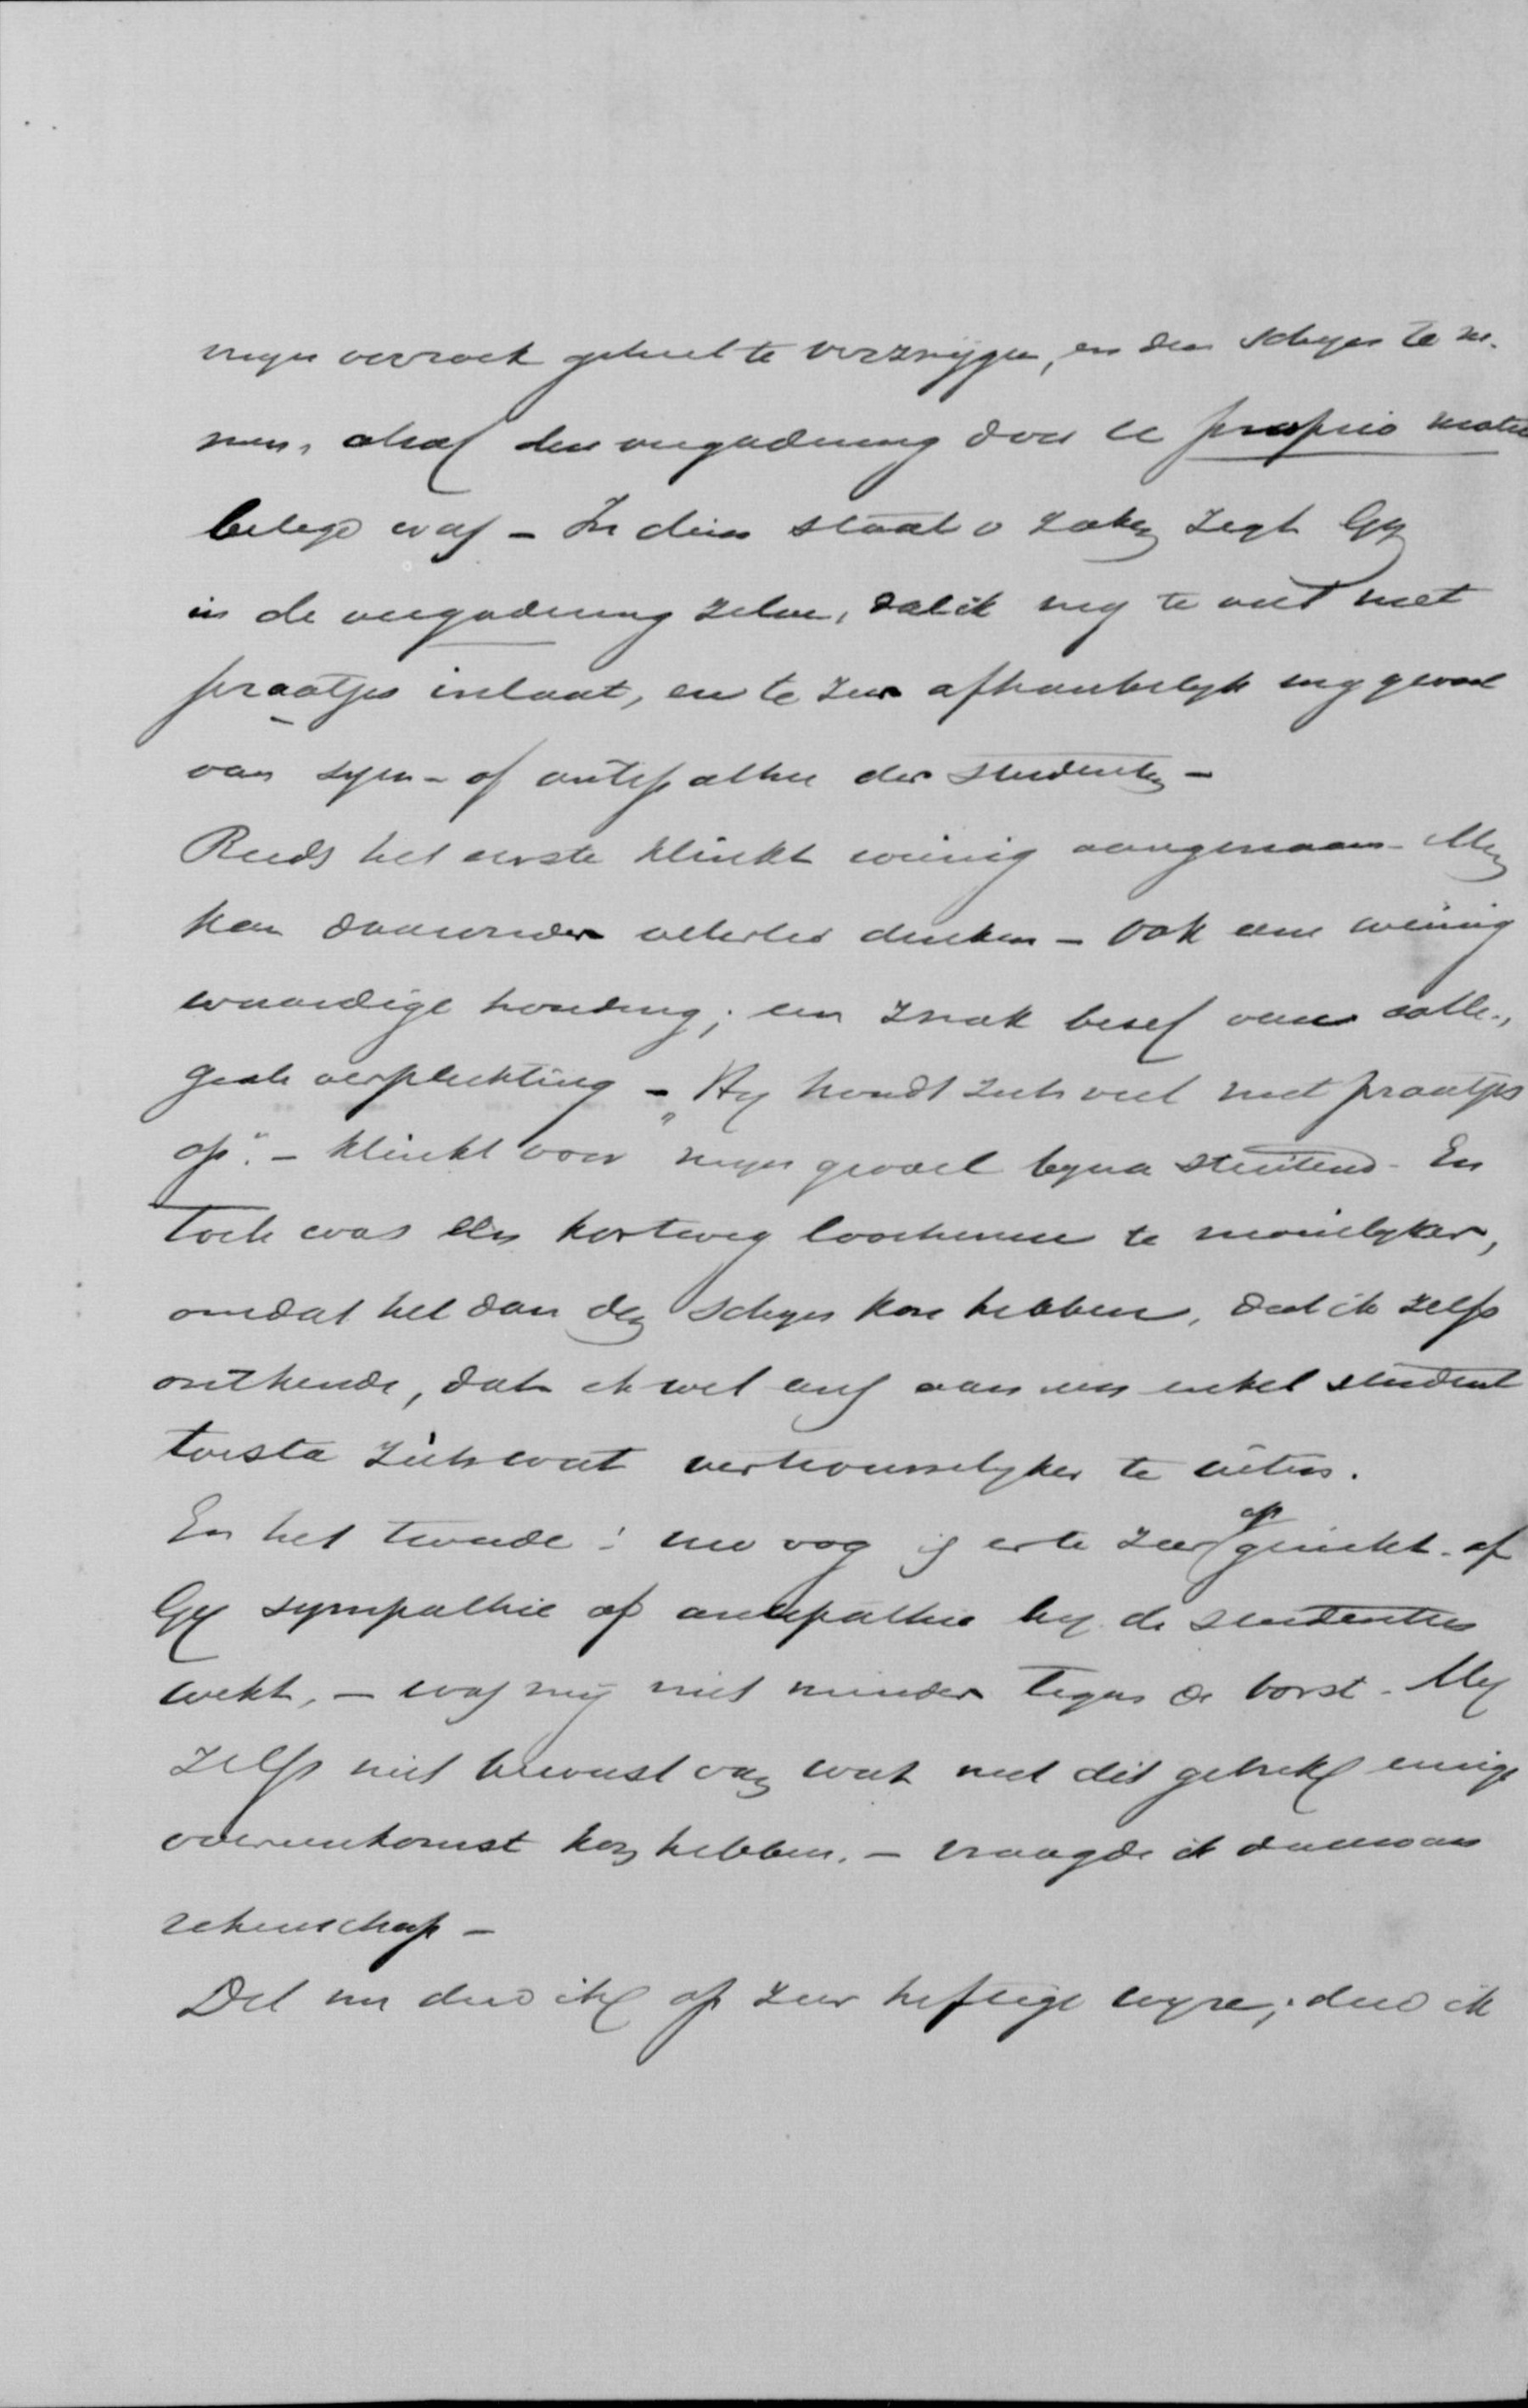 mijn verzoek geheel te verzwijgen, en den schijn te ne-
men, alsof den vergadering door U proprio motu
belegd was – In dien staat v zaken zegt Gij
in de vergadering zelve, dat ik mij te veel met
praatjes inlaat, en te zeer afhankelijk mij gevoel
van sym- of antipathie der studenten –
Reeds het eerste klinkt weinig aangenaam – Men
kan daaronder allerlei denken – ook eene weinig
waardige houding; een zwak besef van colle-
giale verplichting – „Hij houdt zich veel met praatjes
op." – klinkt voor mijn gevoel bijna stuitend – En
toch was een kortweg loochenen te moeielijker,
omdat het dan den schijn kon hebben, dat ik zelfs
ontkende, dat ik wel eens aan een enkel student
toesta zich wat vertrouwelijker te uiten.
En het tweede: uw oog is er te zeer op gericht of
Gij sympathie of antipathie bij de studenten
wekt, – was mij niet minder tegen de borst – Mij
zelfs niet bewust van wat met dit gebrek eenige
overeenkomst kon hebben, – vraagde ik daarvan
rekenschap –
Dit nu deed ik op zeer heftige wijze; deed ik